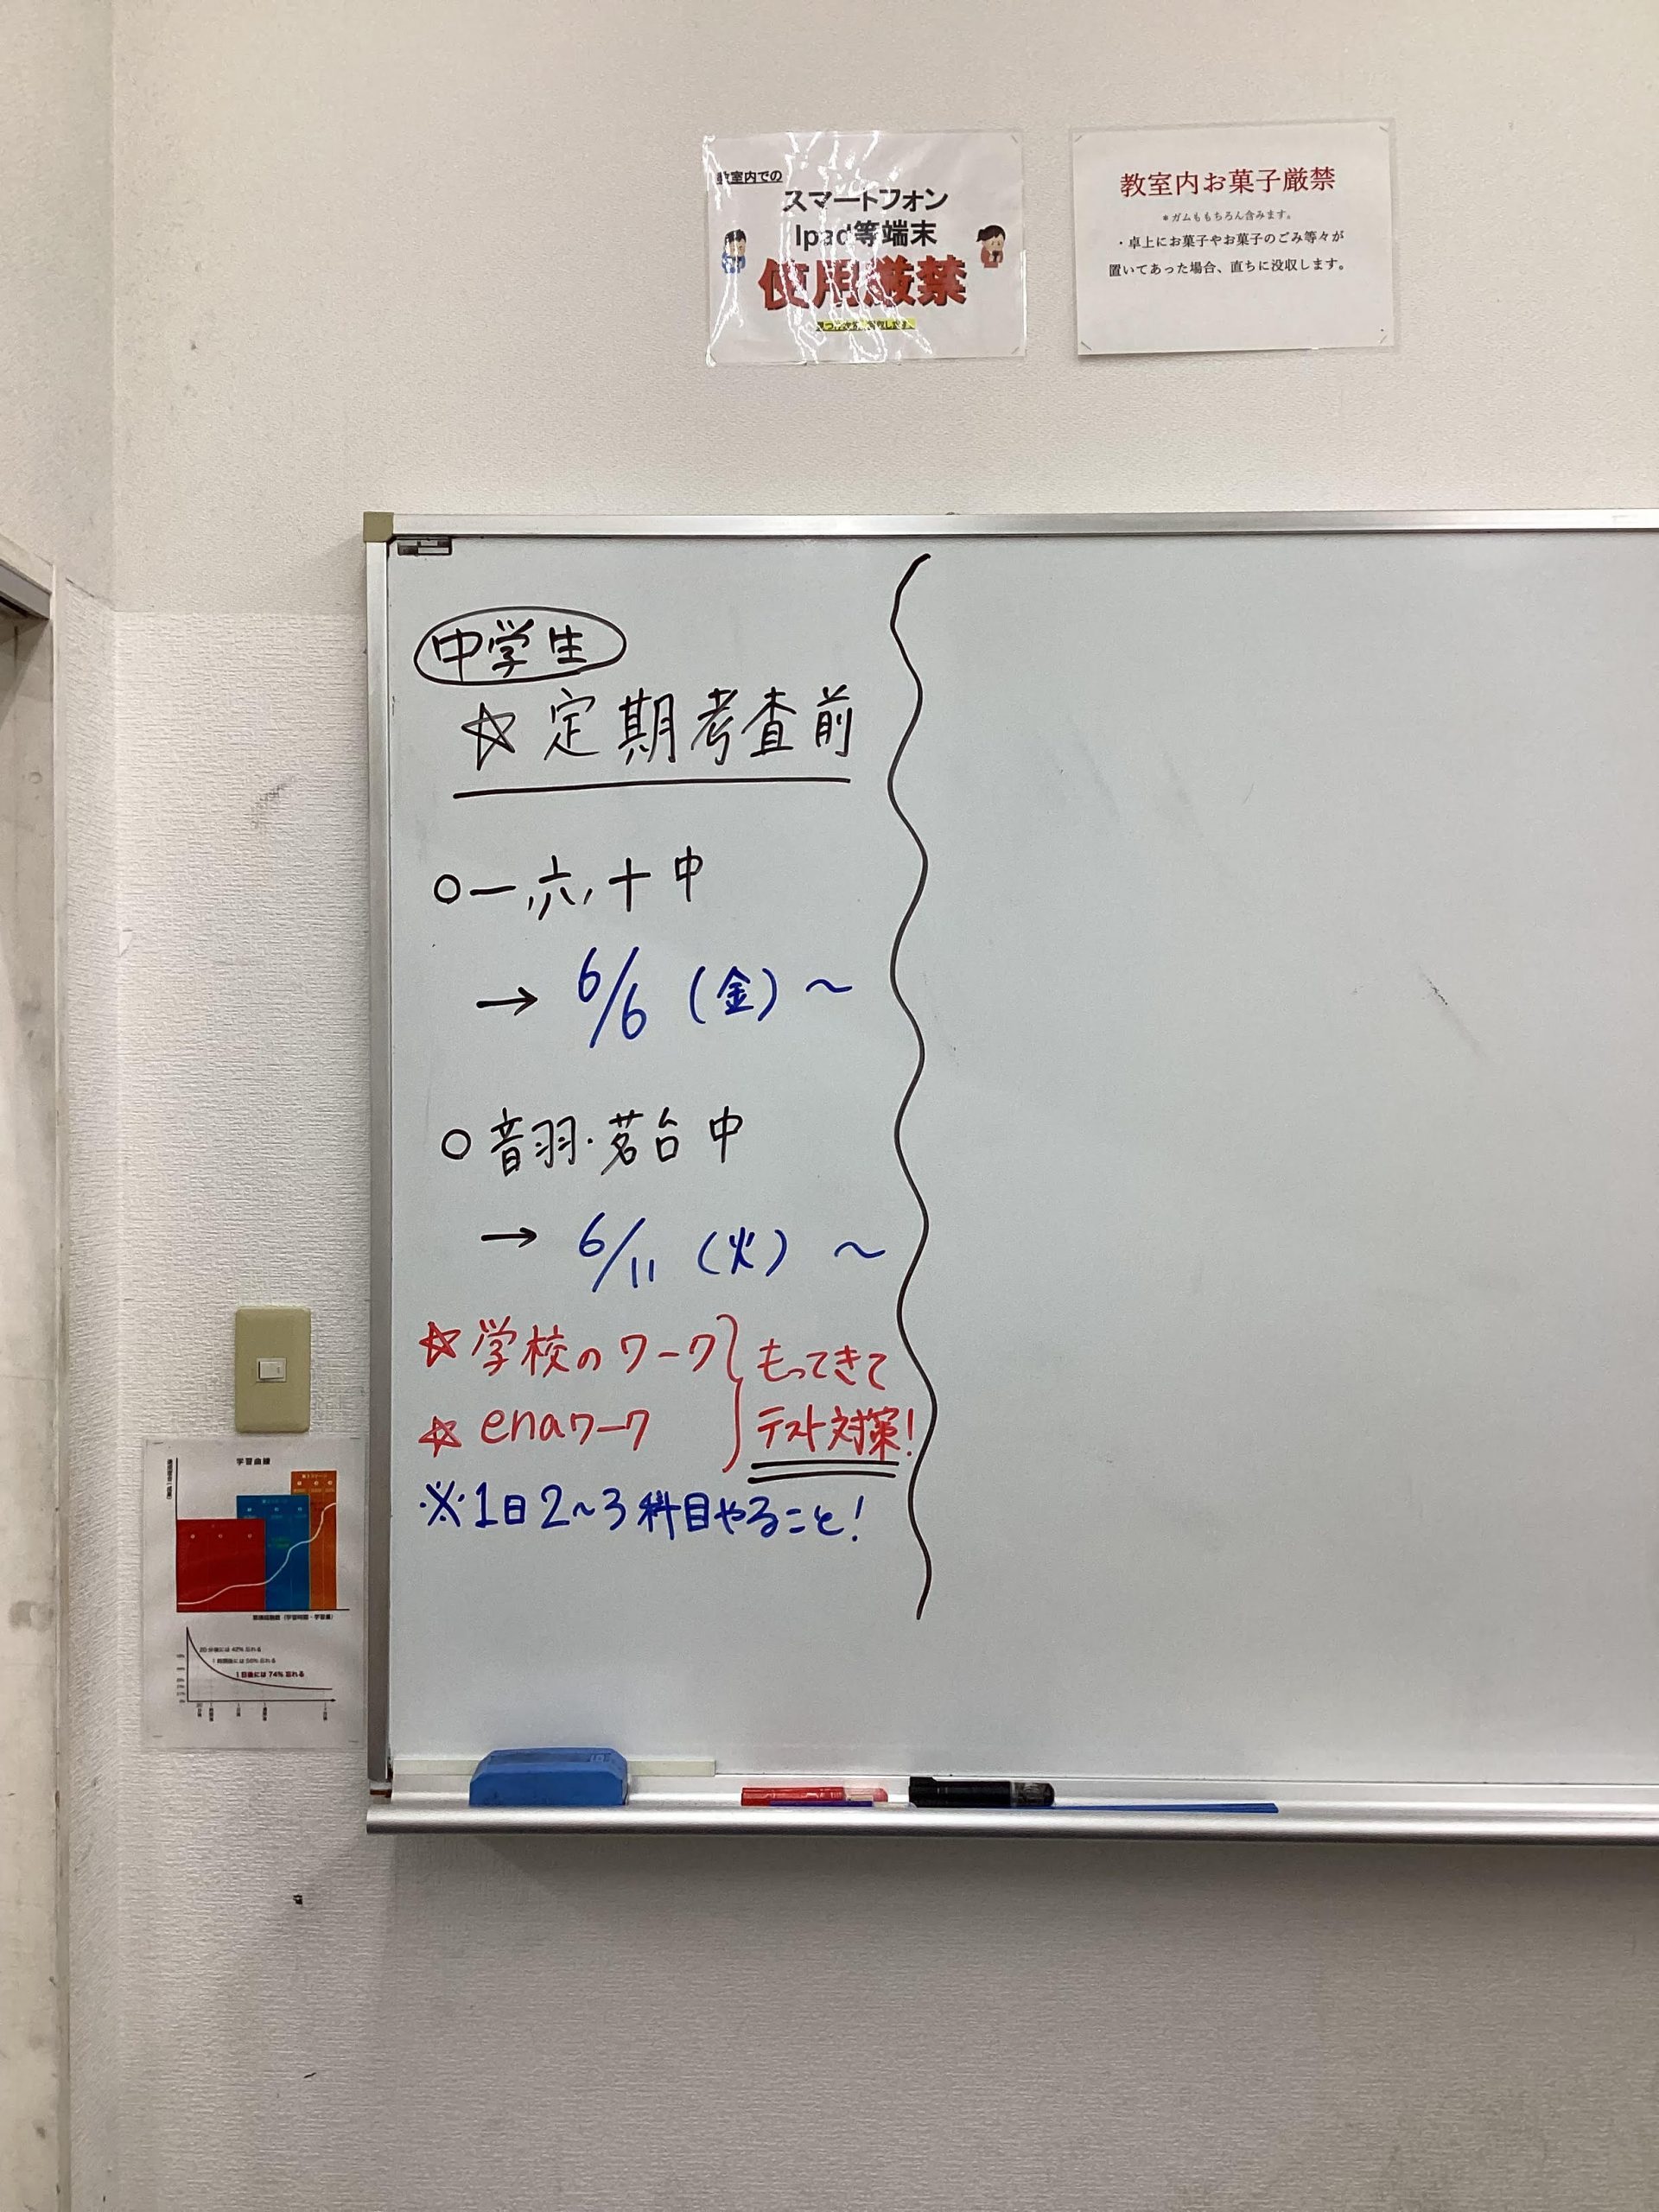 教室内での
スマートフォン
Ipad等端末
使用厳禁
教室内お菓子厳禁
＊ガムももちろん含みます。
・卓上にお菓子やお菓子のごみ等々が
置いてあった場合、直ちに没収します。
中学生
☆定期考査前
○一,六,十中
→ 6/6 (金) ～
○音羽・茗台中
→ 6/11 (火) ～
☆学校のワーク
☆enaワーク
もってきて
テスト対策!
※1日2～3科目やること!
学習曲線
20分後には 42% 忘れる
1時間後には 56% 忘れる
1日後には 74% 忘れる